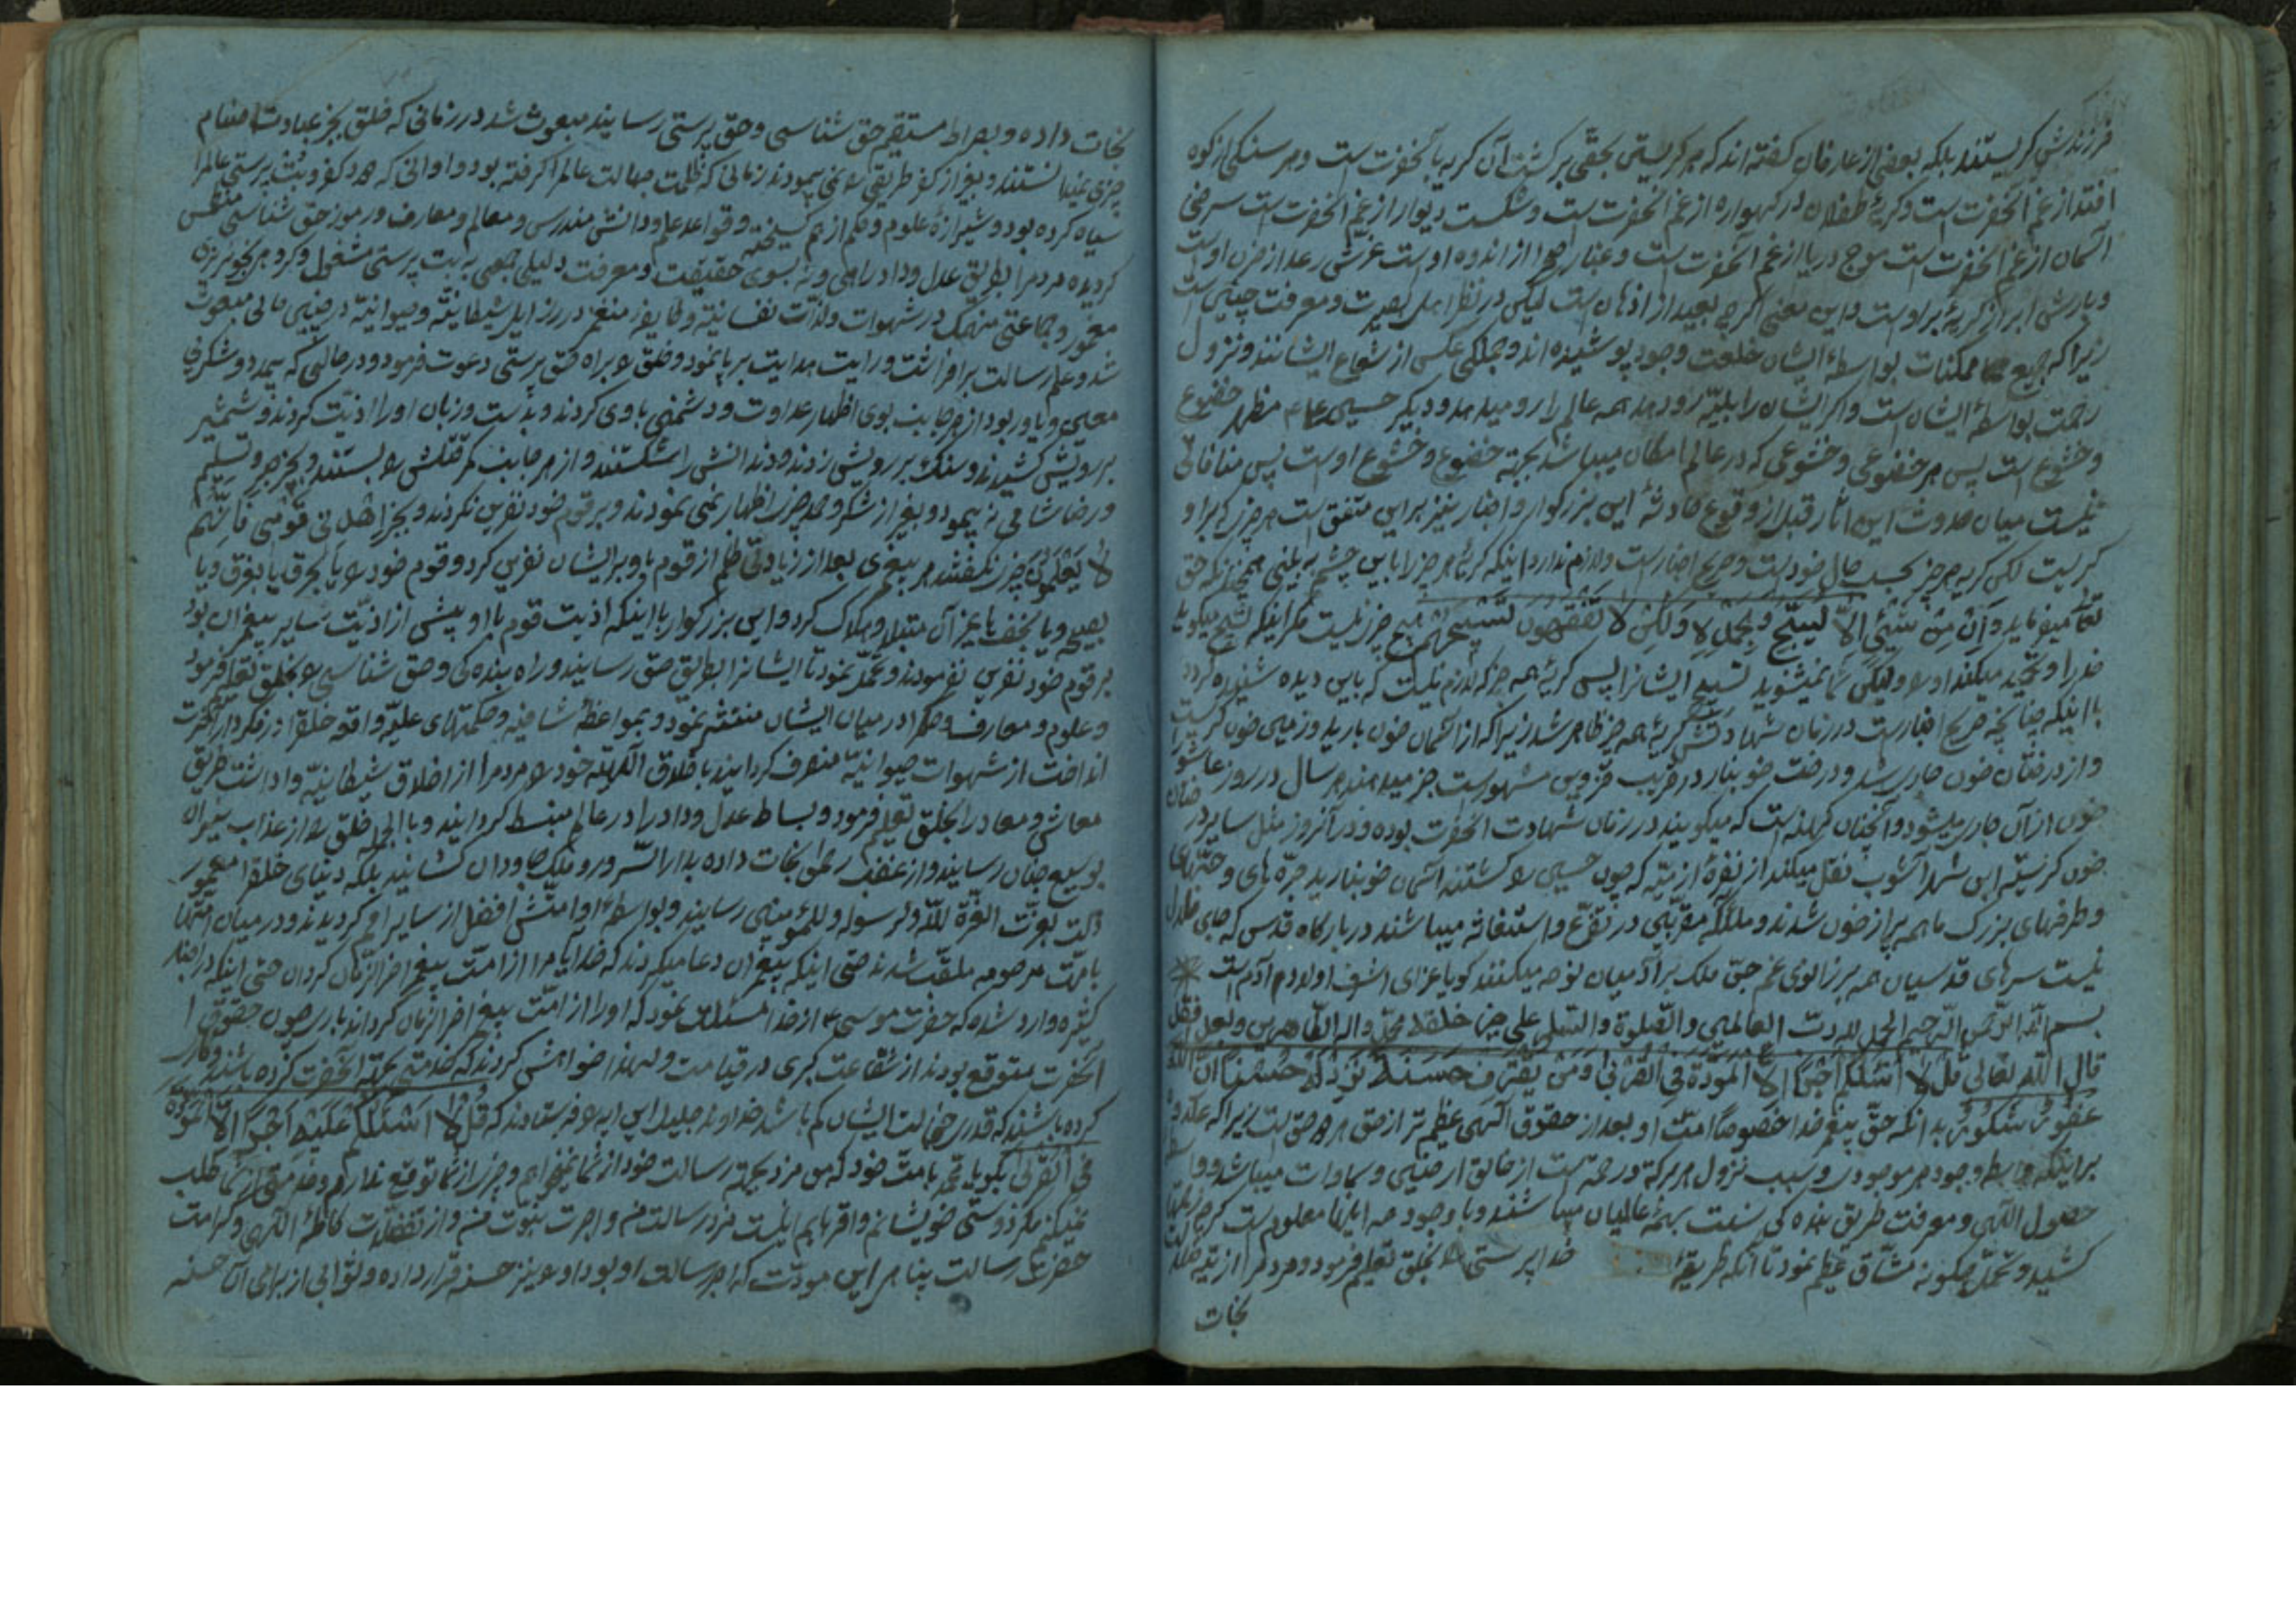 فرزندش کریستند بلکه بعضی از عارفان کفته اند که هر کریستی بحقی برکشت آن کریه بآنحضرت است و هر سنکی از کوه
افتد از غم آنحضرت است و کریهٔ طفلان در کهواره از غم آنحضرت است و شکست دیوار از غم آنحضرت است سرخی
آسمان از غم آنحضرت است موج دریا از غم آنحضرت است و غبار صحرا از اندوه اوست غرش رعد از حزن اوست
و بارش ابر از کریهٔ بر اوست و این معنی اکرچه بعید از اذهان است لیکن در نظر اهل بصیرت و معرفت چنین است
زیرا که جمیع ممکنات بواسطهٔ ایشان خلعت وجود پوشیده اند و جملکی عکسی از شعاع ایشانند و نزول
رحمت بواسطهٔ ایشان است و اکر ایشان را بلیّه رو دهد همه عالم را رو میدهد و دیکر حسین مظهر خضوع
و خشوع است پس هر خضوعی و خشوعی که در عالم امکان میباشد بجهة خضوع و خشوع اوست پس منافاتی
نیست میان حدوث این آثار قبل از وقوع حادثهٔ این بزرکوار و اخبار نیز بر این متفق است هر چیز که بر او
کریست لکن کریه هر چیز بحسب حال خود است و صریح اخبار است و لازم ندارد اینکه کریهٔ هر چیز را باین چشم به بینی همچنانکه حق
تعالی میفرماید وَاِن مِن شَیْئٍ اِلاّ یُسَبِّحُ بِحَمْدِهِ وَلکِن لا تَفْقَهُونَ تَسْبِیحَهُمْ هیچ چیز نیست مکر اینکه تسبیح میکوید
خدا را و تحمید میکند او را ولیکن شما نمیشنوید تسبیح ایشانرا پس کریهٔ همه چیز که لازم نیست که باین دیده شنیده کردد
با اینکه چنانچه صریح اخبار است در زمان شهادتش کریهٔ همه چیز ظاهر شد زیرا که از آسمان خون بارید و زمین خون کریست
و از درختان خون جاری شد و درخت خونبار در قریب قزوین مشهور است خبر میدهند هر سال در روز عاشورا
خون از آن جاری میشود و آنچنان کهنه است که میکویند در زمان شهادت آنحضرت بوده و در آنروز مثل سایر درختان
خون کریسته ابن شهر آشوب نقل میکند از نضرهٔ ازدیّه که چون حسین را کشتند آسمان خونبارید جرّه های و خمهای
و ظرفهای بزرک ما همه پر از خون شدند و ملائکه مقرّبین در تضرّع و استغاثه میباشند در بارکاه قدس که جای ملال
نیست سرهای قدسیان همه بر زانوی غم جن و ملک بر آدمیان نوحه میکنند کویا عزای اشرف اولاد آدم است
بسم اللّه الرّحمن الرّحیم الحمد للّه ربّ العالمین و الصّلوة و السّلام علی خیر خلقه محمّد و اله الطّاهرین و بعد فقد
قال اللّه تعالی قُل لا اَسْئَلُکُمْ عَلَیْهِ اَجْراً اِلاّ الْمَوَدَّةَ فِی الْقُرْبی وَ مَن یَقْتَرِف حَسَنَةً نَزِد لَهُ حُسْناً اِنَّ اللّه
غَفُورٌ شَکُورٌ بدانکه حقّ پیغمبر خدا خصوصاً امّت او بعد از حقوق آلهی عظیم تر از حق هر صاحب حق است زیرا که علاوه
بر اینکه واسطهٔ وجود هر موجود و سبب نزول هر برکة و رحمت است از خالق ارضین و سماوات میباشد و
حصول الهی و معرفت طریق بنده کی نسبت بهمهٔ عالمیان میباشند و با وجود همه اینها معلوم است که
کشید و تحمّل چکونه مشاق عظیم نمود تا آنکه طریقهٔ خدا پرستی را بخلق تعلیم فرمود و مردم را از تیه ضلالت
نجات
نجات داده و بصراط مستقیم حق شناسی و حق پرستی رسانید مبعوث شد در زمانی که خلق بجز عبادت اصنام
چیزی نمیدانستند و بغیر از کفر طریقی را نمی پیمودند زمانی که ظلمت جهالت عالم را کرفته بود و اوانی که دود کفر و بت پرستی عالم را
سیاه کرده بود و شیرازهٔ علوم و حکم از هم کسیخته و قواعد علم و دانش مندرس و معالم و معارف و رموز حق شناسی منطمس
کردیده مردم را بطریق عدل و داد راهی و نه بسوی حقیقت و معرفت دلیلی جمعی به بت پرستی مشغول و کروهی بخونریزی
معمور و جماعتی منهمک در شهوات و لذّات نفسانیّه و طایفهٔ منغمر در رزایل شیطانیّه و حیوانیّه در چنین حالی مبعوث
شد و علم رسالت برافراشت و رایت هدایت بر پا نمود و خلق را براه حق پرستی دعوت فرمود و در حالتی که بیمدد و شکری
معین و یاور بود از هر جانب بوی اظهار عداوت و دشمنی با وی کردند و بدست و زبان او را اذیّت کردند و شمشیر
بر رویش کشیدند و سنک بر رویش زدند و دندانش را شکستند و از هر جانب کمر قتلش را بستند و بجز صبر و تسلیم
و رضا شامی نه پیمود و بغیر از شکر و حمد چیزی اظهار نمی نمودند و بر قوم خود نفرین نکردند و بجز اِهْدِ قَومی فَاِنَّهُم
لا یَعْلَمُونَ چیزی نکفتند هر پیغمبری بعد از زیادتی ظلم از قوم باو بر ایشان نفرین کرد و قوم خود را یا بحرق یا بغرق و یا
بصیحه و یا بخسف یا غیر آن مبتلا و هلاک کرد و این بزرکوار با اینکه اذیت قوم با او بیش از اذیّت سایر پیغمبران بود
بر قوم خود نفرین نفرمودند و تحمّل نمود تا ایشانرا بطریق حق رسانید و راه بنده کی و حق شناسی را بخلق تعلیم فرمود
و علوم و معارف و حکم را در میان ایشان منتشر نمود و بمواعظ شافیه و حکمتهای علیّه وافیه خلق را در فکر دار آخرت
انداخت از شهوات حیوانیّه منصرف کردانید باخلاق آلهیّه خود مردم را از اخلاق شیطانیّه وا داشت طریق
معاش و معاد را بخلق تعلیم فرمود و بساط عدل و داد را در عالم منبسط کردانید و بالجمله خلق را از عذاب نیران
بوسیع جنان رسانید و از غضب نجات داده بدار السّرور و ملک جاودان کشانید بلکه دنیای خلق را معمور
ذلت بعزّت العزّة للّه و لرسوله و للمؤمنین رسانید و بواسطهٔ او امّتش افضل از سایر امم کردیدند و در میان امّتها
بامّت مرحومه ملقّب شدند حتی اینکه پیغمبران دعا میکردند که خدایا ما را از امّت پیغمبر آخر الزّمان کردان حتی اینکه در اخبار
کثیره وارد شده که حضرت موسی از خدا مسئلت نمود که او را از امّت پیغمبر آخر الزّمان کرداند بار
آنحضرت متوقع بودند از شفاعت کبری در قیامت و لهذا خواهش کردند که خدمتی بجهة آنحضرت کرده باشند و کاری
کرده باشند که قدری خجالت ایشان کم باشد خداوند جلیل این آیه را فرستادند که قُل لا اَسْئَلُکُم عَلَیْهِ اَجْراً اِلاّ الْمَوَدَّة
فِی الْقُرْبی بکو یا محمّد بامّت خود که من مزد بجهة رسالت خود از شما نمیخواهم و چیزی از شما توقع ندارم و خدمتی از شما طلب
نمیکنم مکر دوستی خویشانم و اقربایم اینست مزد رسالت من و اجرت نبوّت من و از تفضّلات کاملهٔ الهی و کرامت
حضرت رسالت پناهی این مودّت که اجر رسالت او بود او را نیز حسنه قرار داده و ثوابی از برای آن حسنه